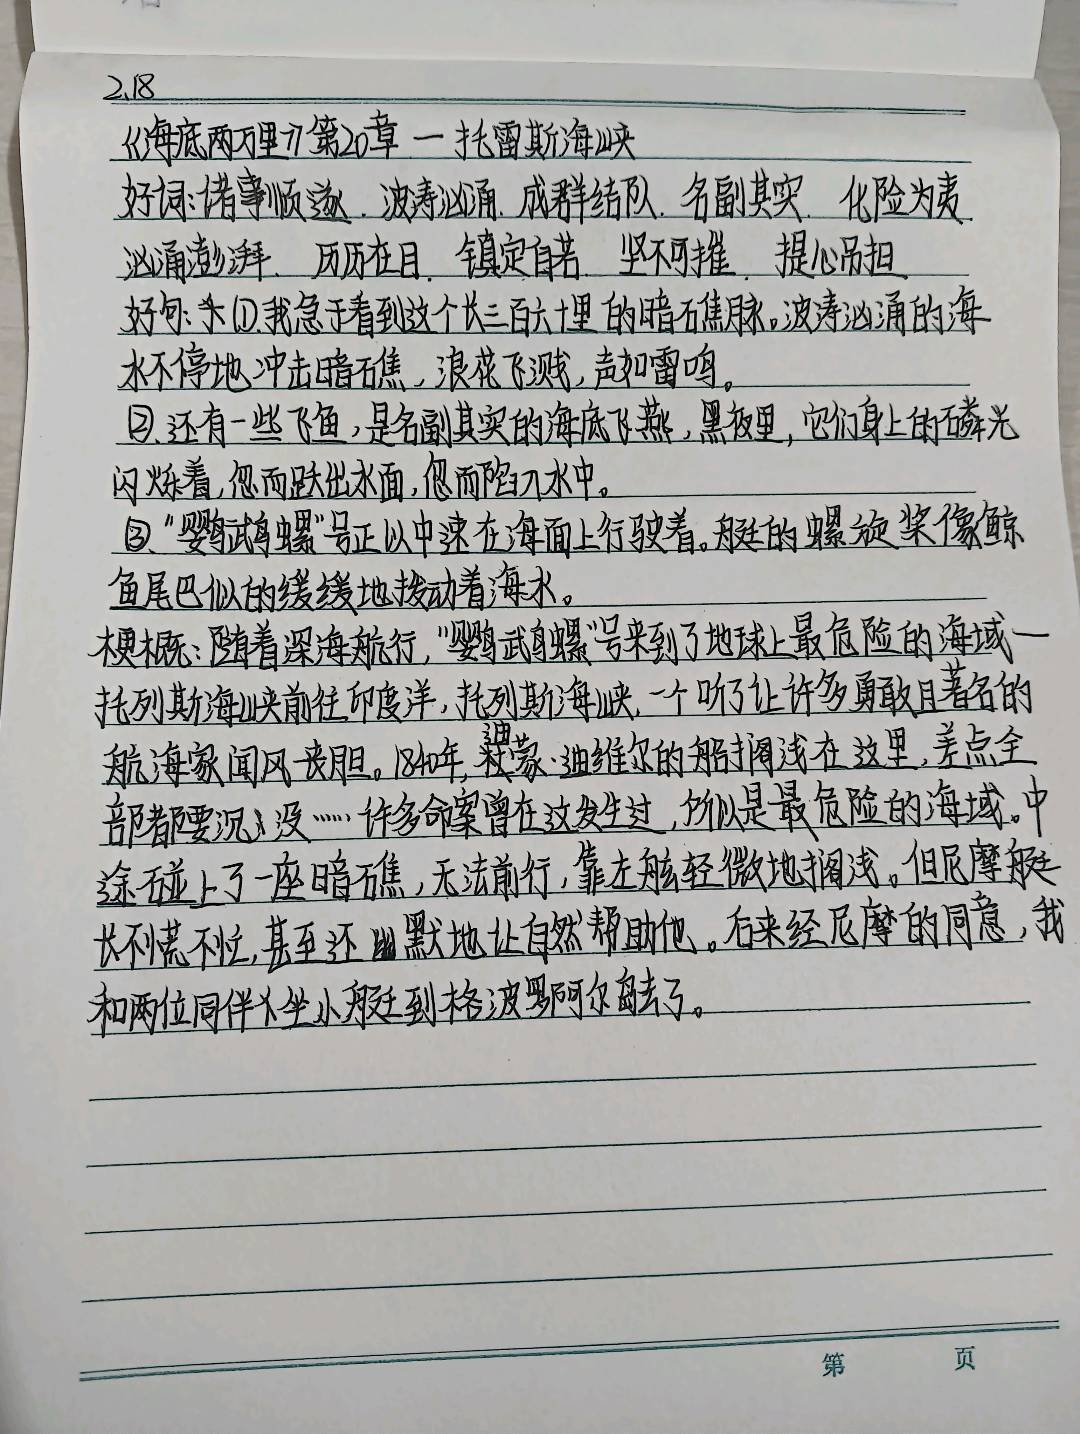 2.18
《海底两万里》第20章 — 托雷斯海峡
好词:诸事顺遂. 波涛汹涌. 成群结队. 名副其实. 化险为夷.
汹涌澎湃. 历历在目. 镇定自若. 坚不可摧. 提心吊担.
好句:①.我急于看到这个长三百六十里的暗石焦脉。波涛汹涌的海
水不停地冲击暗石焦,浪花飞溅,声如雷鸣。
②.还有一些飞鱼,是名副其实的海底飞燕,黑夜里,它们身上的磷光
闪烁着,忽而跃出水面,忽而陷入水中。
③."鹦鹉螺"号正以中速在海面上行驶着。艇的螺旋桨像鲸
鱼尾巴似的缓缓地拨动着海水。
梗概:随着深海航行,"鹦鹉螺"号来到了地球上最危险的海域—
托列斯海峡前往印度洋,托列斯海峡,一个听了让许多勇敢且著名的
航海家闻风丧胆。1840年,迪蒙·迪维尔的船搁浅在这里,差点全
部都要沉没……许多命案曾在这发生过,所以是最危险的海域。中
途碰上了一座暗石焦,无法前行,靠左舷轻微地搁浅。但尼摩艇
长不慌不忙,甚至还幽默地让自然帮助他。后来经尼摩的同意,我
和两位同伴坐小艇到格波罗阿尔岛去了。
第 页